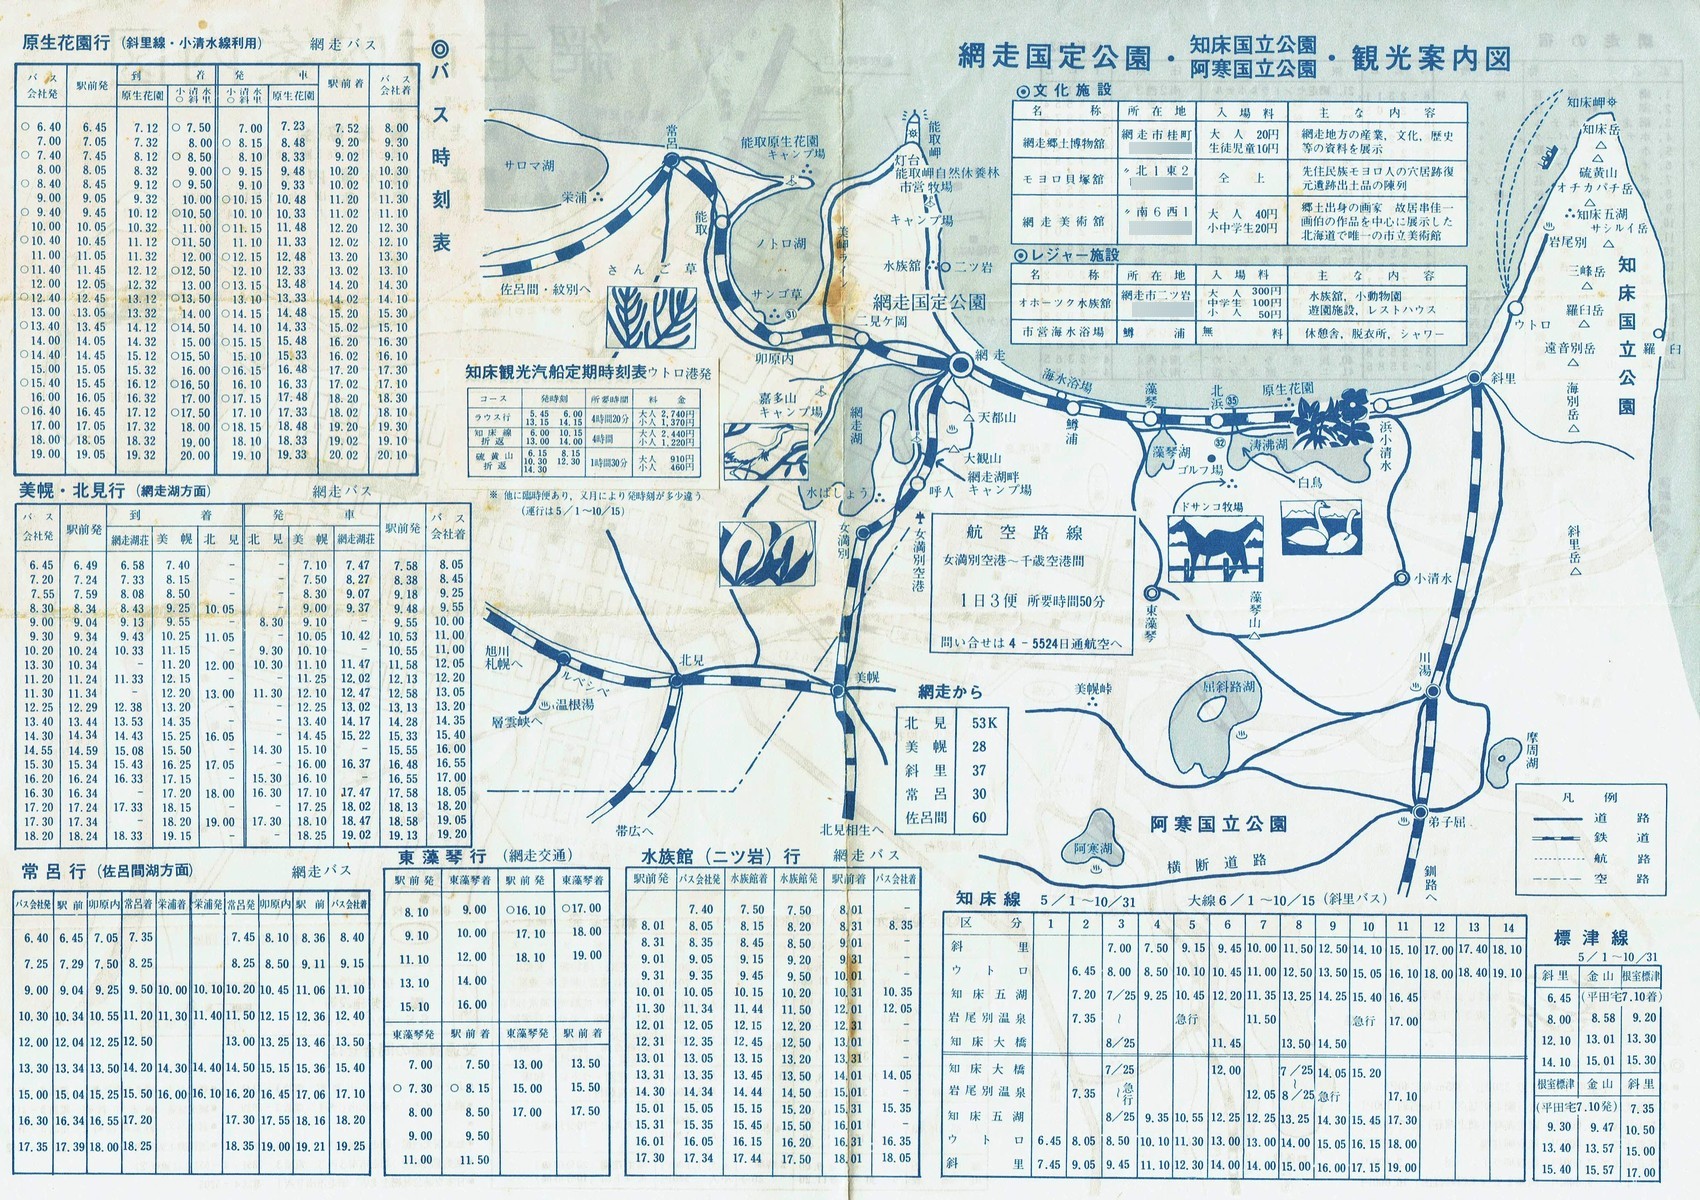 網走国定公園・知床国立公園 阿寒国立公園・観光案内図
◎バス時刻表
原生花園行（斜里線・小清水線利用） 網走バス
バス会社発 駅前発 到着 発車 駅前着 バス会社着
原生花園 小清水 ○斜里 小清水 ○斜里 原生花園
○6.40 6.45 7.12 ○7.50 7.00 7.23 7.52 8.00
7.00 7.05 7.32 8.00 ○8.15 8.48 9.20 9.30
○7.40 7.45 8.12 ○8.50 8.10 8.33 9.02 9.10
8.00 8.05 8.32 9.00 ○9.15 9.48 10.20 10.30
○8.40 8.45 9.12 ○9.50 9.10 9.33 10.02 10.10
9.00 9.05 9.32 10.00 ○10.15 10.48 11.20 11.30
○9.40 9.45 10.12 ○10.50 10.10 10.33 11.02 11.10
10.00 10.05 10.32 11.00 ○11.15 11.48 12.20 12.30
○10.40 10.45 11.12 ○11.50 11.10 11.33 12.02 12.10
11.00 11.05 11.32 12.00 ○12.15 12.48 13.20 13.30
○11.40 11.45 12.12 ○12.50 12.10 12.33 13.02 13.10
12.00 12.05 12.32 13.00 ○13.15 13.48 14.20 14.30
○12.40 12.45 13.12 ○13.50 13.10 13.33 14.02 14.10
13.00 13.05 13.32 14.00 ○14.15 14.48 15.20 15.30
○13.40 13.45 14.12 ○14.50 14.10 14.33 15.02 15.10
14.00 14.05 14.32 15.00 ○15.15 15.48 16.20 16.30
○14.40 14.45 15.12 ○15.50 15.10 15.33 16.02 16.10
15.00 15.05 15.32 16.00 ○16.15 16.48 17.20 17.30
○15.40 15.45 16.12 ○16.50 16.10 16.33 17.02 17.10
16.00 16.05 16.32 17.00 ○17.15 17.48 18.20 18.30
○16.40 16.45 17.12 ○17.50 17.10 17.33 18.02 18.10
17.00 17.05 17.32 18.00 ○18.15 18.48 19.20 19.30
18.00 18.05 18.32 19.00 18.10 18.33 19.02 19.10
19.00 19.05 19.32 20.00 19.10 19.33 20.02 20.10
美幌・北見行（網走湖方面） 網走バス
バス会社発 駅前発 到着 発車 駅前発 バス会社着
網走湖荘 美幌 北見 北見 美幌 網走湖荘
6.45 6.49 6.58 7.40 - - 7.10 7.47 7.58 8.05
7.20 7.24 7.33 8.15 - - 7.50 8.27 8.38 8.45
7.55 7.59 8.08 8.50 - - 8.30 9.07 9.18 9.25
8.30 8.34 8.43 9.25 10.05 - 9.00 9.37 9.48 9.55
9.00 9.04 9.13 9.55 - 8.30 9.10 - 9.55 10.00
9.30 9.34 9.43 10.25 11.05 - 10.05 10.42 10.53 11.00
10.20 10.24 10.33 11.15 - 9.30 10.10 - 10.55 11.00
13.30 10.34 - 11.20 12.00 10.30 11.10 11.47 11.58 12.05
11.20 11.24 11.33 12.15 - - 11.25 12.02 12.13 12.20
11.30 11.34 - 12.20 13.00 11.30 12.10 12.47 12.58 13.05
12.25 12.29 12.38 13.20 - - 12.25 13.02 13.13 13.20
13.40 13.44 13.53 14.35 - - 13.40 14.17 14.28 14.35
14.30 14.34 14.43 15.25 16.05 - 14.45 15.22 15.33 15.40
14.55 14.59 15.08 15.50 - 14.30 15.10 - 15.55 16.00
15.30 15.34 15.43 16.25 17.05 - 16.00 16.37 16.48 16.55
16.20 16.24 16.33 17.15 - 15.30 16.10 - 16.55 17.00
16.30 16.34 - 17.20 18.00 16.30 17.10 17.47 17.58 18.05
17.20 17.24 17.33 18.15 - - 17.25 18.02 18.13 18.20
17.30 17.34 - 18.20 19.00 17.30 18.10 18.47 18.58 19.05
18.20 18.24 18.33 19.15 - - 18.25 19.02 19.13 19.20
常呂行（佐呂間湖方面） 網走バス
バス会社発 駅前 卯原内 常呂着 栄浦着 栄浦発 常呂発 卯原内 駅前 バス会社着
6.40 6.45 7.05 7.35 7.45 8.10 8.36 8.40
7.25 7.29 7.50 8.25 8.25 8.50 9.11 9.15
9.00 9.04 9.25 9.50 10.00 10.10 10.20 10.45 11.06 11.10
10.30 10.34 10.55 11.20 11.30 11.40 11.50 12.15 12.36 12.40
12.00 12.04 12.25 12.50 13.00 13.25 13.46 13.50
13.30 13.34 13.50 14.20 14.30 14.40 14.50 15.15 15.36 15.40
15.00 15.04 15.25 15.50 16.00 16.10 16.20 16.45 17.06 17.10
16.30 16.34 16.55 17.20 17.30 17.55 18.16 18.20
17.35 17.39 18.00 18.25 18.35 19.00 19.21 19.25
東藻琴行（網走交通）
駅前発 東藻琴着 駅前発 東藻琴着
8.10 9.00 ○16.10 ○17.00
9.10 10.00 17.10 18.00
11.10 12.00 18.10 19.00
13.10 14.00
15.10 16.00
東藻琴発 駅前着 東藻琴発 駅前着
7.00 7.50 13.00 13.50
○7.30 ○8.15 15.00 15.50
8.00 8.50 17.00 17.50
9.00 9.50
11.00 11.50
水族館（二ツ岩）行 網走バス
駅前発 バス会社発 水族館着 水族館発 駅前着 バス会社着
7.40 7.50 7.50 8.01 -
8.01 8.05 8.15 8.20 8.31 8.35
8.31 8.35 8.45 8.50 9.01 -
9.01 9.05 9.15 9.20 9.31 -
9.31 9.35 9.45 9.50 10.01 -
10.01 10.05 10.15 10.20 10.31 10.35
11.30 11.34 11.44 11.50 12.01 12.05
12.01 12.05 12.15 12.20 12.31 -
12.31 12.35 12.45 12.50 13.01 -
13.01 13.05 13.15 13.20 13.31 -
13.31 13.35 13.45 13.50 14.01 14.05
14.30 14.34 14.44 14.50 15.01 -
15.01 15.05 15.15 15.20 15.31 15.35
15.31 15.35 15.45 15.50 16.01 -
16.01 16.05 16.15 16.20 16.31 16.35
17.30 17.34 17.44 17.50 18.01 18.05
◎文化施設
名称 所在地 入場料 主な内容
網走郷土博物館 網走市桂町 大人20円 生徒児童10円 網走地方の産業、文化、歴史等の資料を展示
モヨロ貝塚館 〃北1東2 仝上 先住民族モヨロ人の穴居跡復元遺跡出土品の陳列
網走美術館 〃南6西1 大人40円 小中学生20円 郷土出身の画家 故居串佳一画伯の作品を中心に展示した北海道で唯一の市立美術館
◎レジャー施設
名称 所在地 入場料 主な内容
オホーツク水族館 網走市二ツ岩 大人300円 中学生100円 小人50円 水族館、小動物園 遊園施設、レストハウス
市営海水浴場 鱒浦 無料 休憩舎、脱衣所、シャワー
知床観光汽船定期時刻表 ウトロ港発
コース 発時刻 所要時間 料金
ラウス行 5.45 6.00 13.15 14.15 4時間20分 大人2,740円 小人1,370円
知床線折返 6.00 10.15 13.00 14.00 4時間 大人2,440円 小人1,220円
硫黄山折返 6.15 8.15 10.30 12.30 14.30 1時間30分 大人910円 小人460円
※ 他に臨時便あり、又月により発時刻が多少違う
（運行は5/1～10/15）
航空路線
女満別空港～千歳空港間
1日3便 所要時間50分
問い合せは4-5524日通航空へ
網走から
北見 53K
美幌 28
斜里 37
常呂 30
佐呂間 60
凡例
道路
鉄道
航路
空路
サロマ湖
栄浦
常呂
能取原生花園
キャンプ場
能取
ノトロ湖
さんご草
佐呂間・紋別へ
サンゴ草
㉛
卯原内
二見ケ岡
美岬ライン
能取岬
灯台
能取岬自然休養林
市営牧場
キャンプ場
水族館
二ツ岩
網走国定公園
網走
嘉多山
キャンプ場
網走湖
水ばしょう
天都山
大観山
網走湖畔
キャンプ場
呼人
女満別
女満別空港
海水浴場
鱒浦
藻琴
北浜
㉟
原生花園
㉜
藻琴湖
ゴルフ場
涛沸湖
白鳥
浜小清水
ドサンコ牧場
斜里
小清水
東藻琴
藻琴山
斜里岳
川湯
屈斜路湖
美幌峠
摩周湖
弟子屈
釧路へ
阿寒国立公園
阿寒湖
横断道路
旭川
札幌へ
ルベシベ
温根湯
層雲峡へ
北見
美幌
帯広へ
北見相生へ
知床岬
知床岳
硫黄山
オチカバチ岳
知床五湖
サシルイ岳
岩尾別
三峰岳
羅臼岳
ウトロ
遠音別岳
海別岳
羅臼
知床国立公園
知床線 5/1～10/31 大線6/1～10/15（斜里バス）
区分 1 2 3 4 5 6 7 8 9 10 11 12 13 14
斜里 7.00 7.50 9.15 9.45 10.00 11.50 12.50 14.10 15.10 17.00 17.40 18.10
ウトロ 6.45 8.00 8.50 10.10 10.45 11.00 12.50 13.50 15.05 16.10 18.00 18.40 19.10
知床五湖 7.20 7/25 9.25 10.45 12.20 11.35 13.25 14.25 15.40 16.45
岩尾別温泉 7.35 ～ 急行 11.50 急行 17.00
知床大橋 8/25 11.45 13.50 14.50
知床大橋 7/25 12.00 7/25 14.05 15.20
岩尾別温泉 7.35 ～急行 12.05 ～8/25 急行 17.10
知床五湖 8/25 9.35 10.55 12.25 12.25 13.25 14.30 15.45 17.30
ウトロ 6.45 8.05 8.50 10.10 11.30 13.00 13.00 14.00 15.05 16.15 18.00
斜里 7.45 9.05 9.45 11.10 12.30 14.00 14.00 15.00 16.00 17.15 19.00
標津線
5/1～10/31
斜里 金山 根室標津
6.45 （平田宅7.10着）
8.00 8.58 9.20
12.10 13.01 13.30
14.10 15.01 15.30
根室標津 金山 斜里
（平田宅7.10発） 7.35
9.30 9.47 10.50
13.40 13.57 15.00
15.40 15.57 17.00